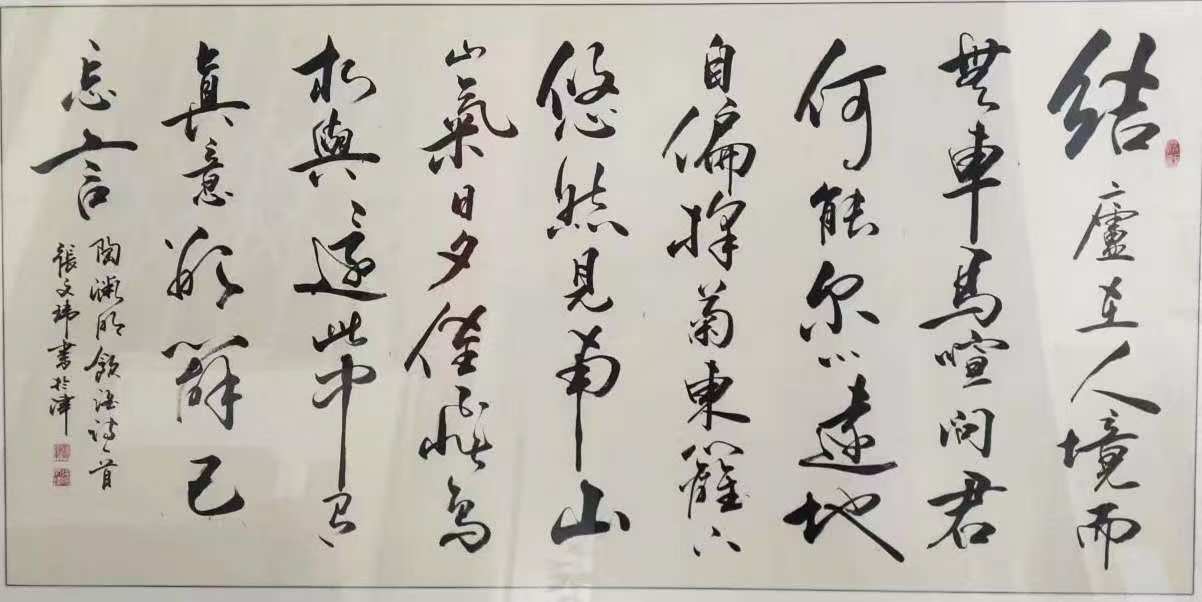 結廬在人境而
無車馬喧問君
何能尔心遠地
自偏採菊東籬下
悠然見南山
山氣日夕佳飛鳥
相與還此中有
真意欲辯已
忘言
陶淵明飲酒詩一首
張文書於津